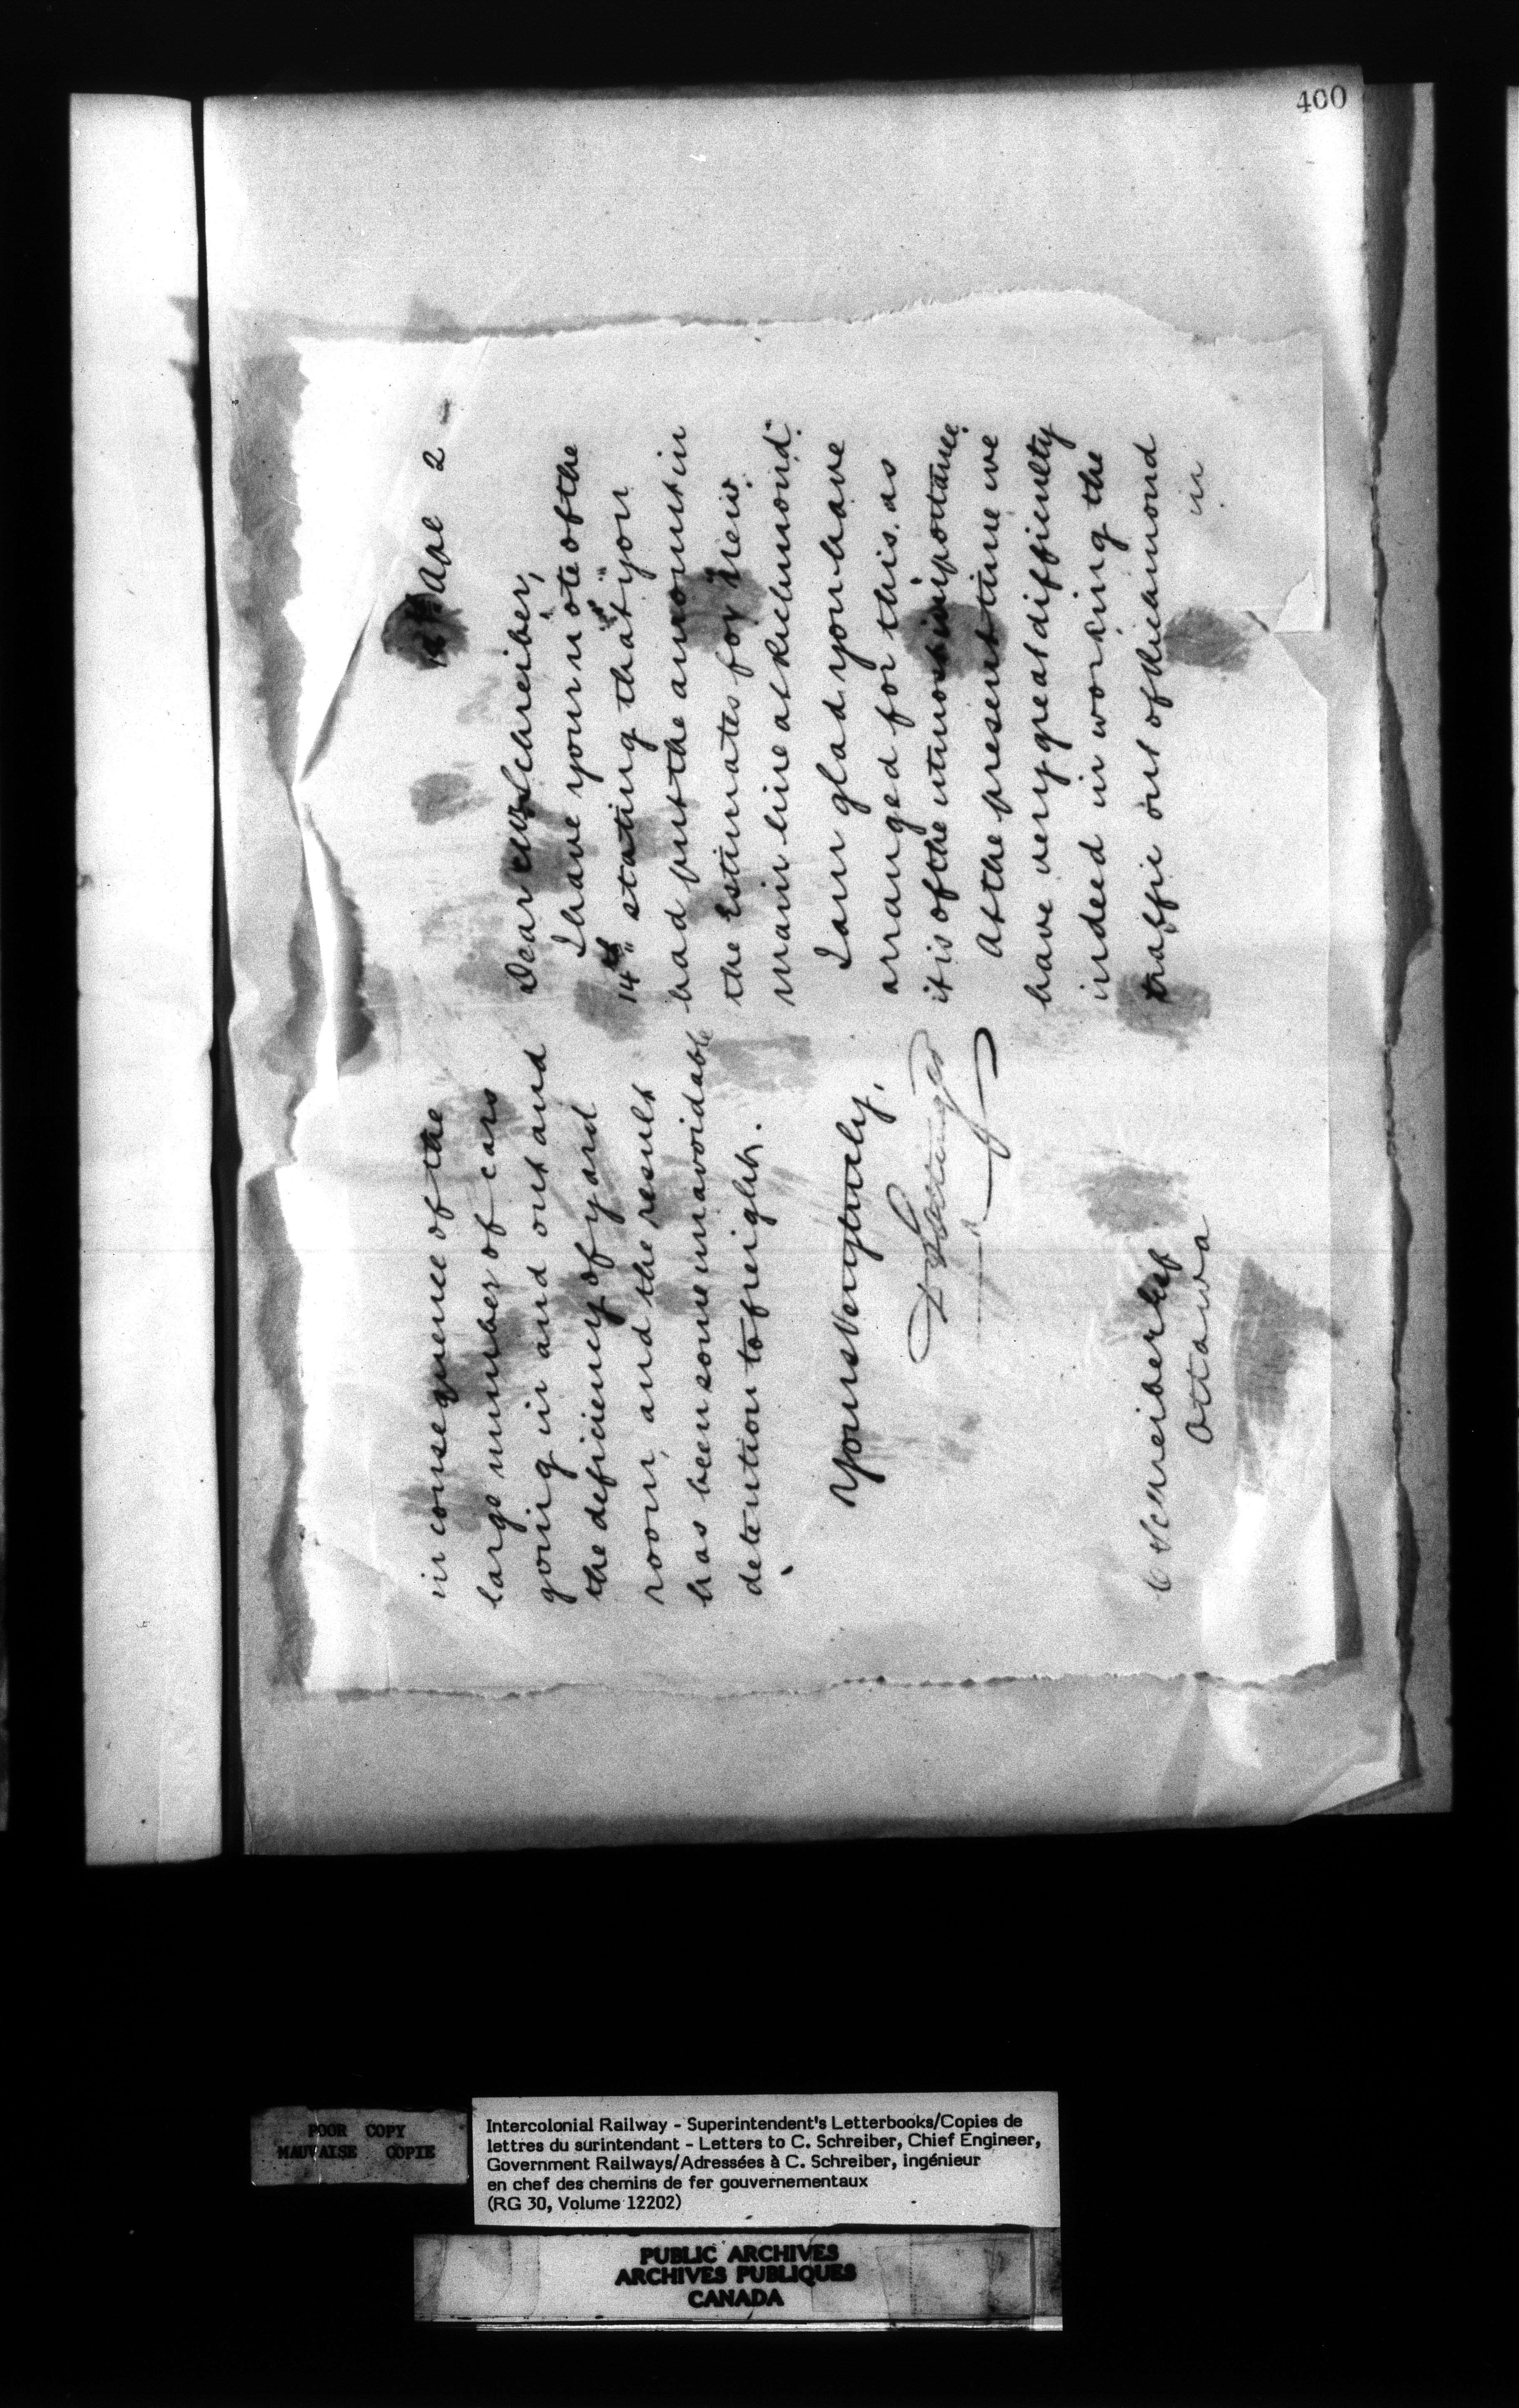 400
Apl 2
Dear Mr Schreiber,
I have your note of the
14th stating that you
had put the amount in
the Estimates for "New
main line at Richmond".
I am glad you have
arranged for this. as
it is of the utmost importance.
At the present time we
have very great difficulty
indeed in working the
traffic out of Richmond
in
in consequence of the
large number of cars
going in and out and
the deficiency of yard
room, and the result
has been some unavoidable
detention to freight.
Yours Very truly,
D Pottinger
C Schreiber Esq
Ottawa
POOR COPY
MAUVAISE COPIE
Intercolonial Railway - Superintendent's Letterbooks/Copies de
lettres du surintendant - Letters to C. Schreiber, Chief Engineer,
Government Railways/Adressées à C. Schreiber, ingénieur
en chef des chemins de fer gouvernementaux
(RG 30, Volume 12202)
PUBLIC ARCHIVES
ARCHIVES PUBLIQUES
CANADA